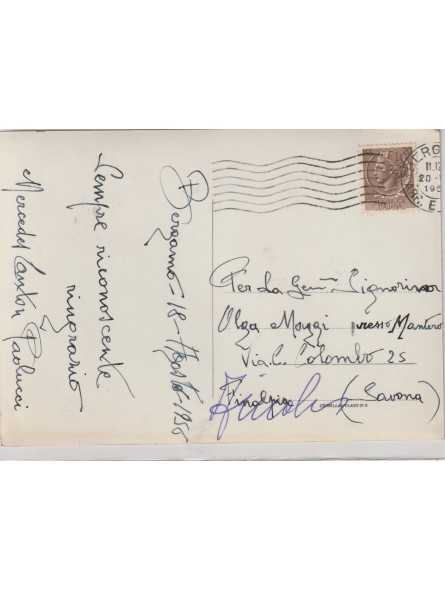 Bergamo - 18 - Agosto 1956
Sempre riconoscente
ringrazio
Mercedes Canton Paolucci
Per la Gen. Signorina
Olga Moggi presso Mantero
Via C. Colombo 25
Finalpia (Savona)
BERG
11.12
20.
195